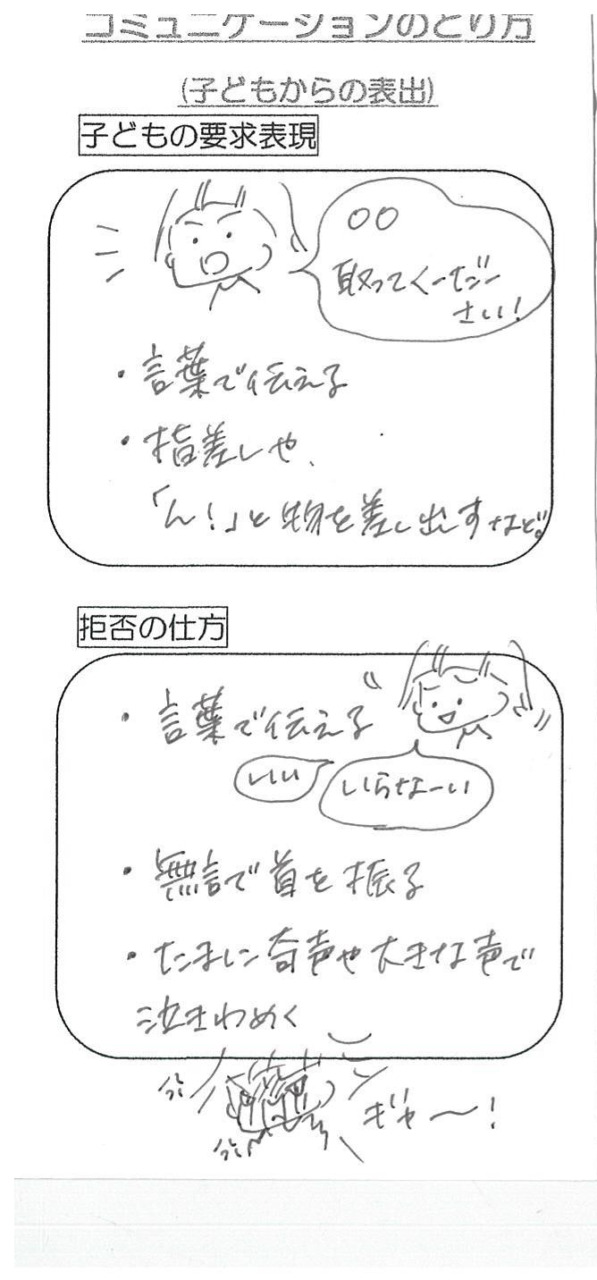 コミュニケーションのとり方
(子どもからの表出)
子どもの要求表現
○○
取ってくーだー
さい!
・言葉で伝える
・指差しや、
「ん!」と物を差し出すなど。
拒否の仕方
・言葉で伝える
いい
いらなーい
・無言で首を振る
・たまに奇声や大きな声で
泣きわめく
ギャ〜!